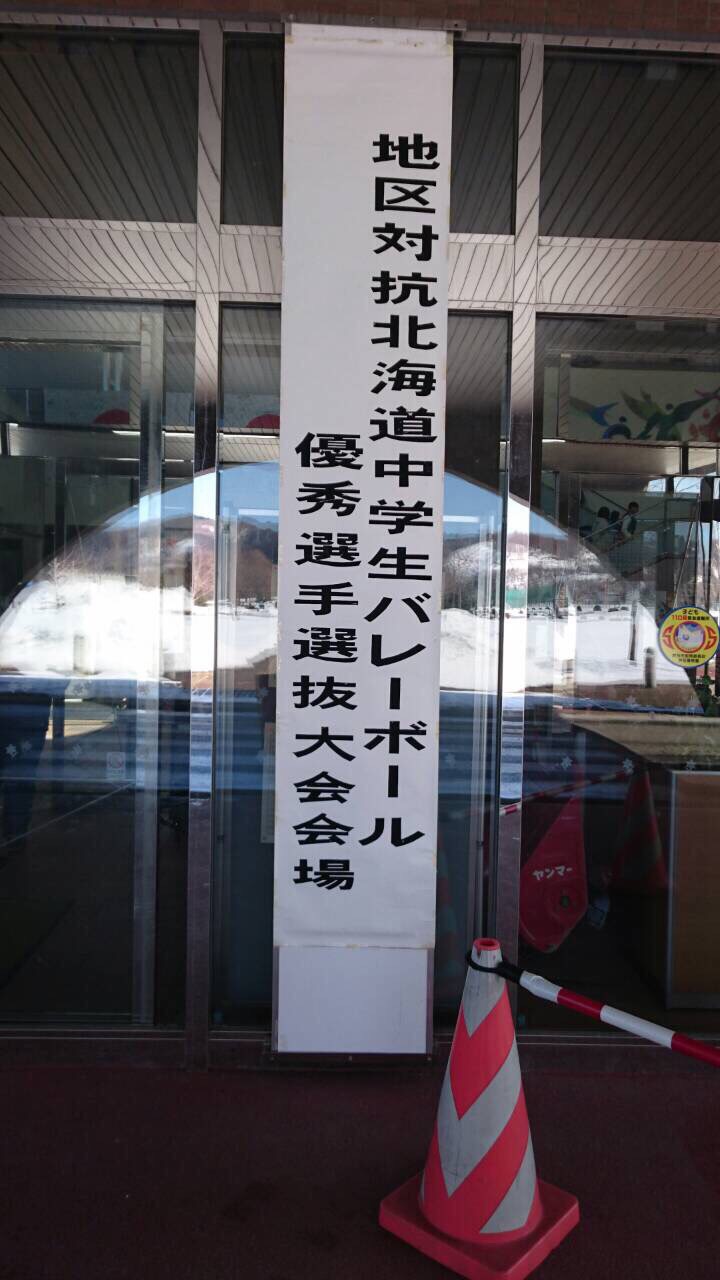 地区対抗北海道中学生バレーボール
優秀選手選抜大会会場
子ども
110番
ヤンマー